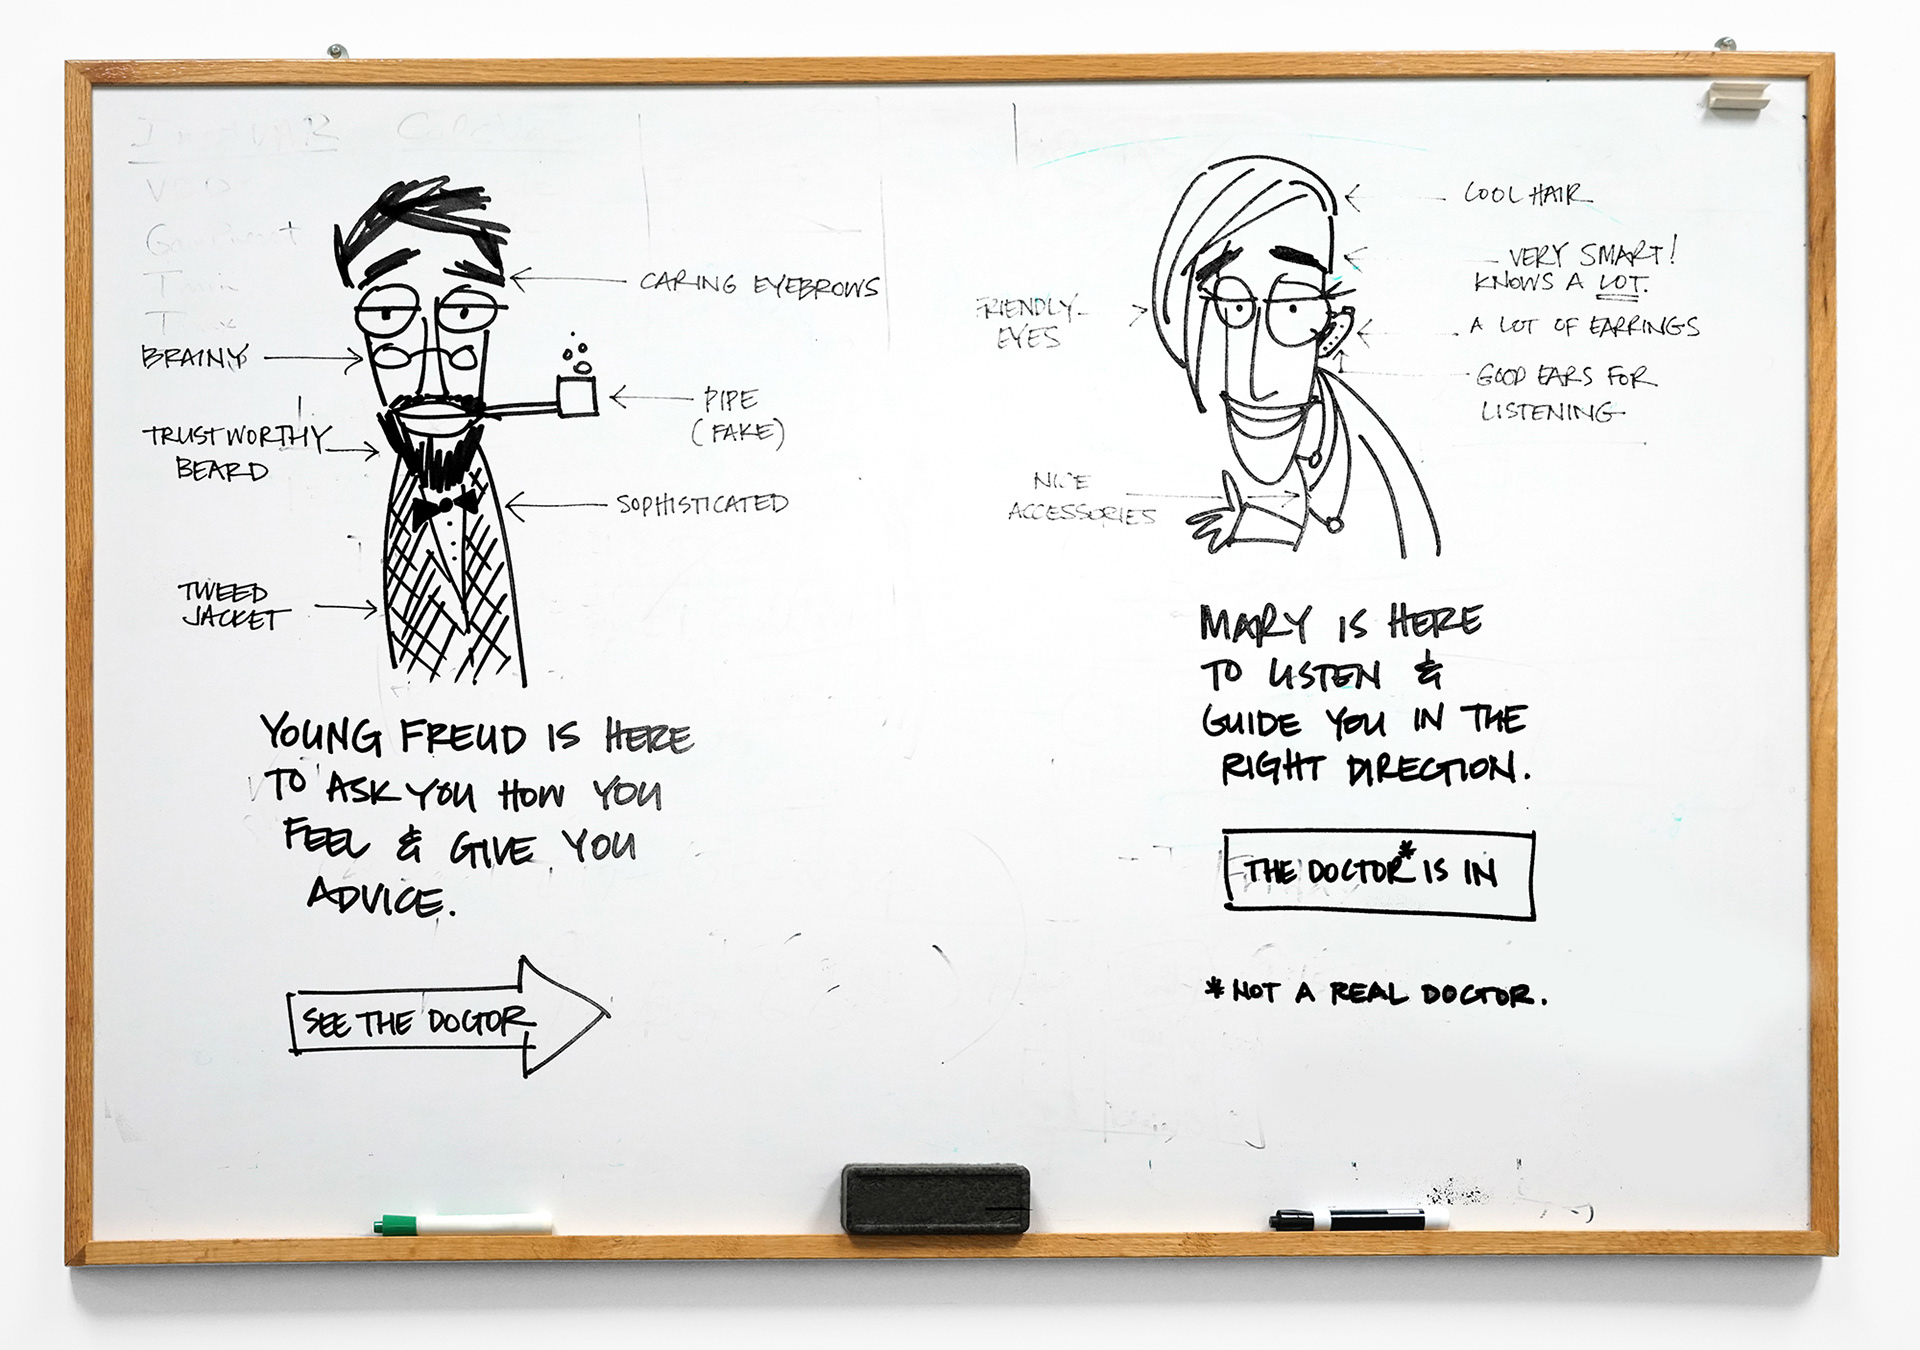 CARING EYEBROWS
BRAINY
PIPE
(FAKE)
TRUSTWORTHY
BEARD
SOPHISTICATED
TWEED
JACKET
YOUNG FREUD IS HERE
TO ASK YOU HOW YOU
FEEL & GIVE YOU
ADVICE.
SEE THE DOCTOR
COOL HAIR
VERY SMART!
KNOWS A LOT.
FRIENDLY
EYES
A LOT OF EARRINGS
GOOD EARS FOR
LISTENING
NICE
ACCESSORIES
MARY IS HERE
TO LISTEN &
GUIDE YOU IN THE
RIGHT DIRECTION.
THE DOCTOR* IS IN
*NOT A REAL DOCTOR.